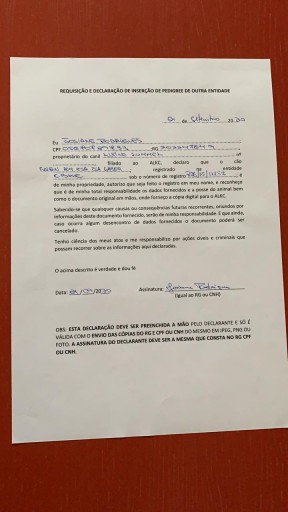 REQUISIÇÃO E DECLARAÇÃO DE INSERÇÃO DE PEDIGREE DE OUTRA ENTIDADE
de Setembro de 2020
Eu
CPF RG
proprietário do canil nº
filiado ao ALKC, declaro que o cão
registrado na entidade
sob o número de registro é
de minha propriedade, autorizo que seja feito o registro em meu nome, e reconheço
que é de minha total responsabilidade os dados fornecidos e a posse do animal bem
como o documento original em mãos, onde forneço a cópia digital para o ALKC.
Sabendo-se que quaisquer causas ou consequências futuras recorrentes, oriundos por
informações deste documento fornecido, serão de minha responsabilidade. E que ainda,
caso ocorra algum desencontro de dados fornecidos o documento poderá ser
cancelado.
Tenho ciência dos meus atos e me responsabilizo por ações cíveis e criminais que
possam recorrer sobre as informações aqui declaradas.
O acima descrito é verdade e dou fé
Data: /09/2020 Assinatura:
(Igual ao RG ou CNH)
OBS: ESTA DECLARAÇÃO DEVE SER PREENCHIDA A MÃO PELO DECLARANTE E SÓ É
VÁLIDA COM O ENVIO DAS CÓPIAS DO RG E CPF OU CNH DO MESMO EM JPEG, PNG OU
FOTO. A ASSINATURA DO DECLARANTE DEVE SER A MESMA QUE CONSTA NO RG CPF
OU CNH.